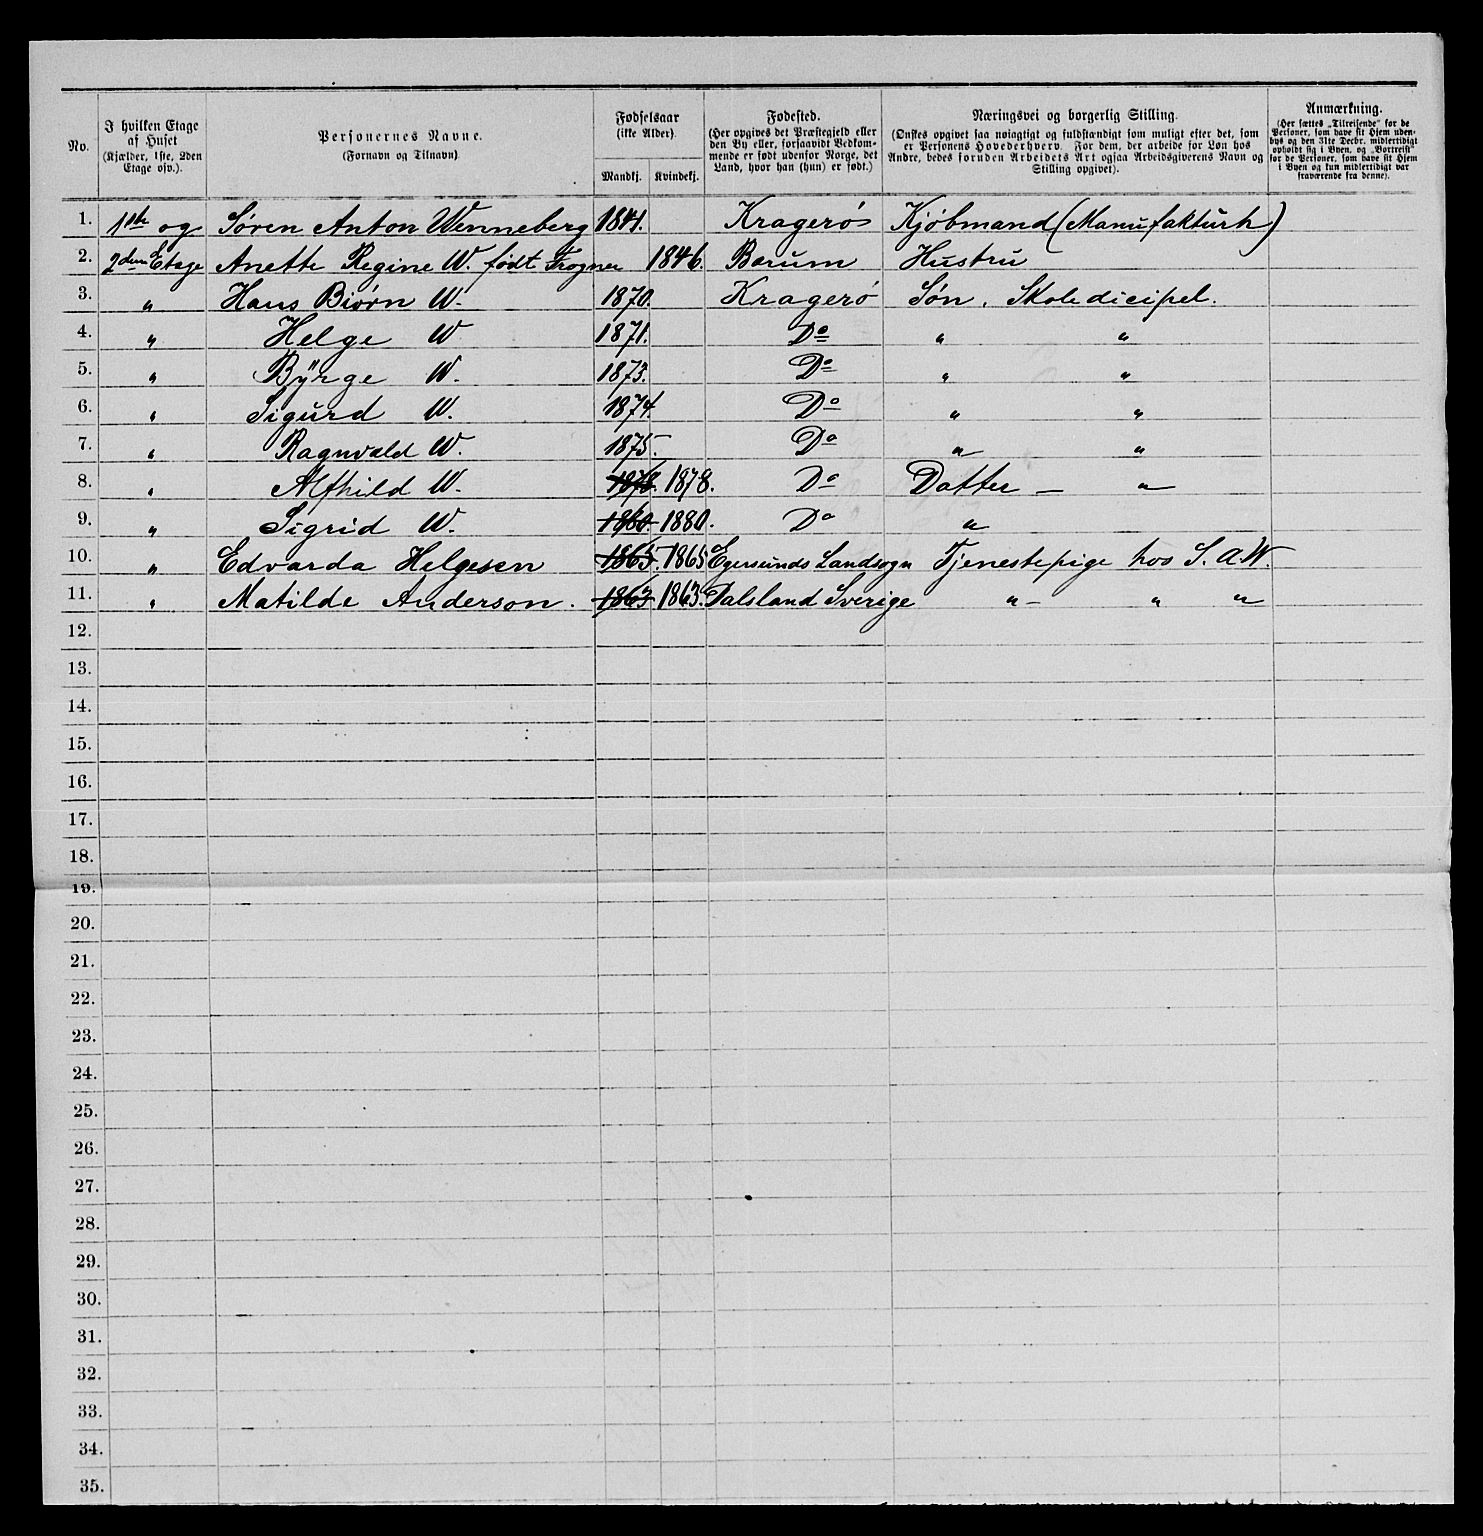 No.
I hvilken Etage af Huset (Kjælder, 1ste, 2den Etage osv.).
Personernes Navne. (Fornavn og Tilnavn)
Fødselsaar (ikke Alder).
Mandkj. Kvindekj.
Fødested. (Her opgives det Præstegjeld eller den By eller, forsaavidt Vedkommende er født udenfor Norge, det Land, hvor han (hun) er født.)
Næringsvei og borgerlig Stilling. (Ønskes opgivet saa nøiagtigt og fuldstændigt som muligt efter det, som er Personens Hovederhverv. For dem, der arbeide for Løn hos Andre, bedes foruden Arbeidets Art ogsaa Arbeidsgiverens Navn og Stilling opgivet).
Anmærkning. (Her sættes „Tilreisende“ for de Personer, som have sit Hjem udenbys og den 31te Decbr. midlertidigt opholdt sig i Byen, og „Bortreist“ for de Personer, som have sit Hjem i Byen og kun midlertidigt var fraværende fra denne).
1. 1ste og Søren Anton Wenneberg 1841. Kragerøs Kjøbmand (Manufakturh)
2. 2den Etage Anette Regine W. født Frogner 1846. Barum Hustru
3. " Hans Biørn W. 1870. Kragerø Søn. Skoledicipel.
4. " Helge W 1871. Do " "
5. " Byrge W. 1873. Do " "
6. " Sigurd W. 1874. Do " "
7. " Ragnvald W. 1875. Do " "
8. " Alfhild W. 1878. 1878. Do Datter — "
9. " Sigrid W. 1880. 1880. Do "
10. " Edvarda Helgesen 1865. 1865 Egersunds Landsogn Tjenestepige hos S. A. W.
11. " Matilde Anderson. 1863 1863. Dalsland Sverige " " "
12.
13.
14.
15.
16.
17.
18.
19.
20.
21.
22.
23.
24.
25.
26.
27.
28.
29.
30.
31.
32.
33.
34.
35.